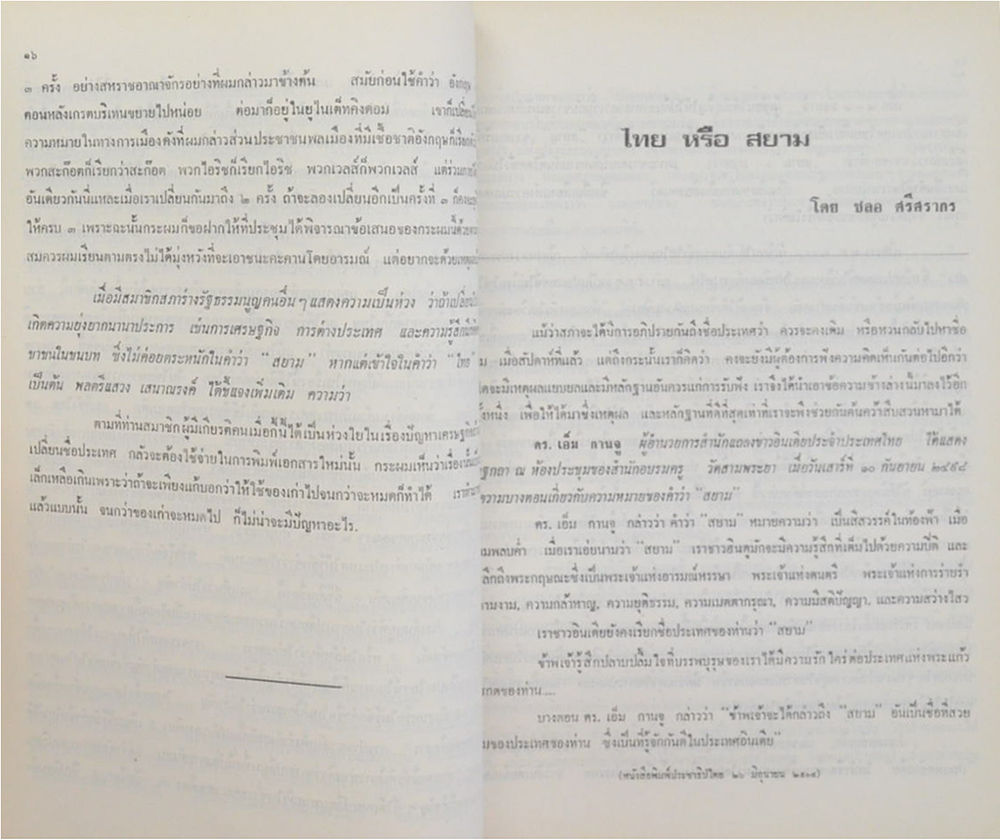 ๑๖
๓ ครั้ง อย่างสหราชอาณาจักรอย่างที่ผมกล่าวมาข้างต้น สมัยก่อนใช้คำว่า อังกฤษ
ตอนหลังเกรตบริเทนขยายไปหน่อย ต่อมาก็อยู่ในยูไนเต็ทคิงดอม เขาก็เปลี่ยน
ความหมายในทางการเมืองดังที่ผมกล่าวส่วนประชาชนพลเมืองที่มีเชื้อชาติอังกฤษก็เรียก
พวกสะก๊อตก็เรียกว่าสะก๊อต พวกไอริชก็เรียกไอริช พวกเวลส์ก็พวกเวลส์ แต่ร่วม
อันเดียวกันนี่แหละเมื่อเราเปลี่ยนกันมาถึง ๒ ครั้ง ถ้าจะลองเปลี่ยนอีกเป็นครั้งที่ ๓ ก็
ให้ครบ ๓ เพราะฉะนั้นกระผมก็ขอฝากให้ที่ประชุมได้พิจารณาข้อเสนอของกระผมนี้ด้วย
สมควรผมเรียนตามตรงไม่ได้มุ่งหวังที่จะเอาชนะคะคานโดยอารมณ์ แต่อยากจะด้วยเหตุ
เมื่อมีสมาชิกสภาร่างรัฐธรรมนูญคนอื่นๆ แสดงความเป็นห่วง ว่าถ้าเปลี่ยน
เกิดความยุ่งยากนานาประการ เช่นการเศรษฐกิจ การต่างประเทศ และความรู้สึก
ชาชนในชนบท ซึ่งไม่ค่อยกระหนักในคำว่า "สยาม" หากแต่เข้าใจในคำว่า "ไทย"
เป็นต้น พลตรีแสวง เสนาณรงค์ ได้ชี้แจงเพิ่มเติม ความว่า
ตามที่ท่านสมาชิกผู้มีเกียรติคนเมื่อกี้นี้ได้เป็นห่วงใยในเรื่องปัญหาเศรษฐกิจ
เปลี่ยนชื่อประเทศ กลัวจะต้องใช้จ่ายในการพิมพ์เอกสารใหม่นั้น กระผมเห็นว่าเรื่อง
เล็กเหลือเกินเพราะว่าถ้าจะเพียงแก้บอกว่าให้ใช้ของเก่าไปจนกว่าจะหมดก็ทำได้ เรา
แล้วแบบนั้น จนกว่าของเก่าจะหมดไป ก็ไม่น่าจะมีปัญหาอะไร.
ไทย หรือ สยาม
โดย ชลอ ศรีสรากร
แม้ว่าสภาจะได้มีการอภิปรายกันถึงชื่อประเทศว่า ควรจะคงเดิม หรือหวนกลับไปหาชื่อ
ม เมื่อสัปดาห์ที่แล้ว แต่ถึงกระนั้นเราก็คิดว่า คงจะยังมีผู้ต้องการฟังความคิดเห็นกันต่อไปอีกว่า
ใดจะมีเหตุผลแยบยลและมีหลักฐานอันควรแก่การรับฟัง เราจึงได้นำเอาข้อความข้างล่างนี้มาลงไว้อีก
งหนึ่ง เพื่อให้ได้มาซึ่งเหตุผล และหลักฐานที่ดีที่สุดเท่าที่เราจะพึงช่วยกันค้นคว้าสืบสวนหามาได้
ดร. เอ็ม กานจู ผู้อำนวยการสำนักแถลงข่าวอินเดียประจำประเทศไทย ได้แสดง
ฐกถา ณ ห้องประชุมของสำนักอบรมครู วัดสามพระยา เมื่อวันเสาร์ที่ ๑๐ กันยายน ๒๔๙๔
ความบางตอนเกี่ยวกับความหมายของคำว่า "สยาม"
ดร. เอ็ม กานจู กล่าวว่า คำว่า "สยาม" หมายความว่า เป็นสีสวรรค์ในท้องฟ้า เมื่อ
มพลบค่ำ เมื่อเราเอ่ยนามว่า "สยาม" เราชาวฮินดูมักจะมีความรู้สึกที่เต็มไปด้วยความปิติ และ
ลึกถึงพระกฤษณะซึ่งเป็นพระเจ้าแห่งอารมณ์หรรษา พระเจ้าแห่งดนตรี พระเจ้าแห่งการร่ายรำ
ามงาม, ความกล้าหาญ, ความยุติธรรม, ความเมตตากรุณา, ความมีสติปัญญา, และความสว่างไสว
เราชาวอินเดียยังคงเรียกชื่อประเทศของท่านว่า "สยาม"
ข้าพเจ้ารู้สึกปลาบปลื้มใจที่บรรพบุรุษของเราได้มีความรักใคร่ต่อประเทศแห่งพระแก้ว
กตของท่าน....
บางตอน ดร. เอ็ม กานจู กล่าวว่า "ข้าพเจ้าจะได้กล่าวถึง "สยาม" อันเป็นชื่อที่สวย
มของประเทศของท่าน ซึ่งเป็นที่รู้จักกันดีในประเทศอินเดีย"
(หนังสือพิมพ์ประชาธิปไตย ๒๖ มิถุนายน ๒๕๐๔)